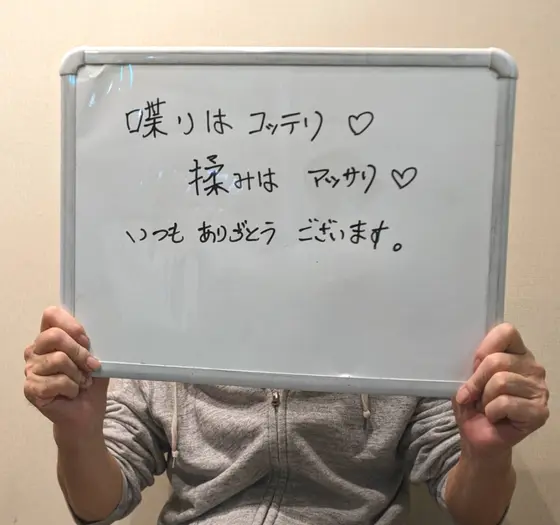 喋りは コッテリ ♡
揉みは アッサリ ♡
いつも ありがとう ございます。